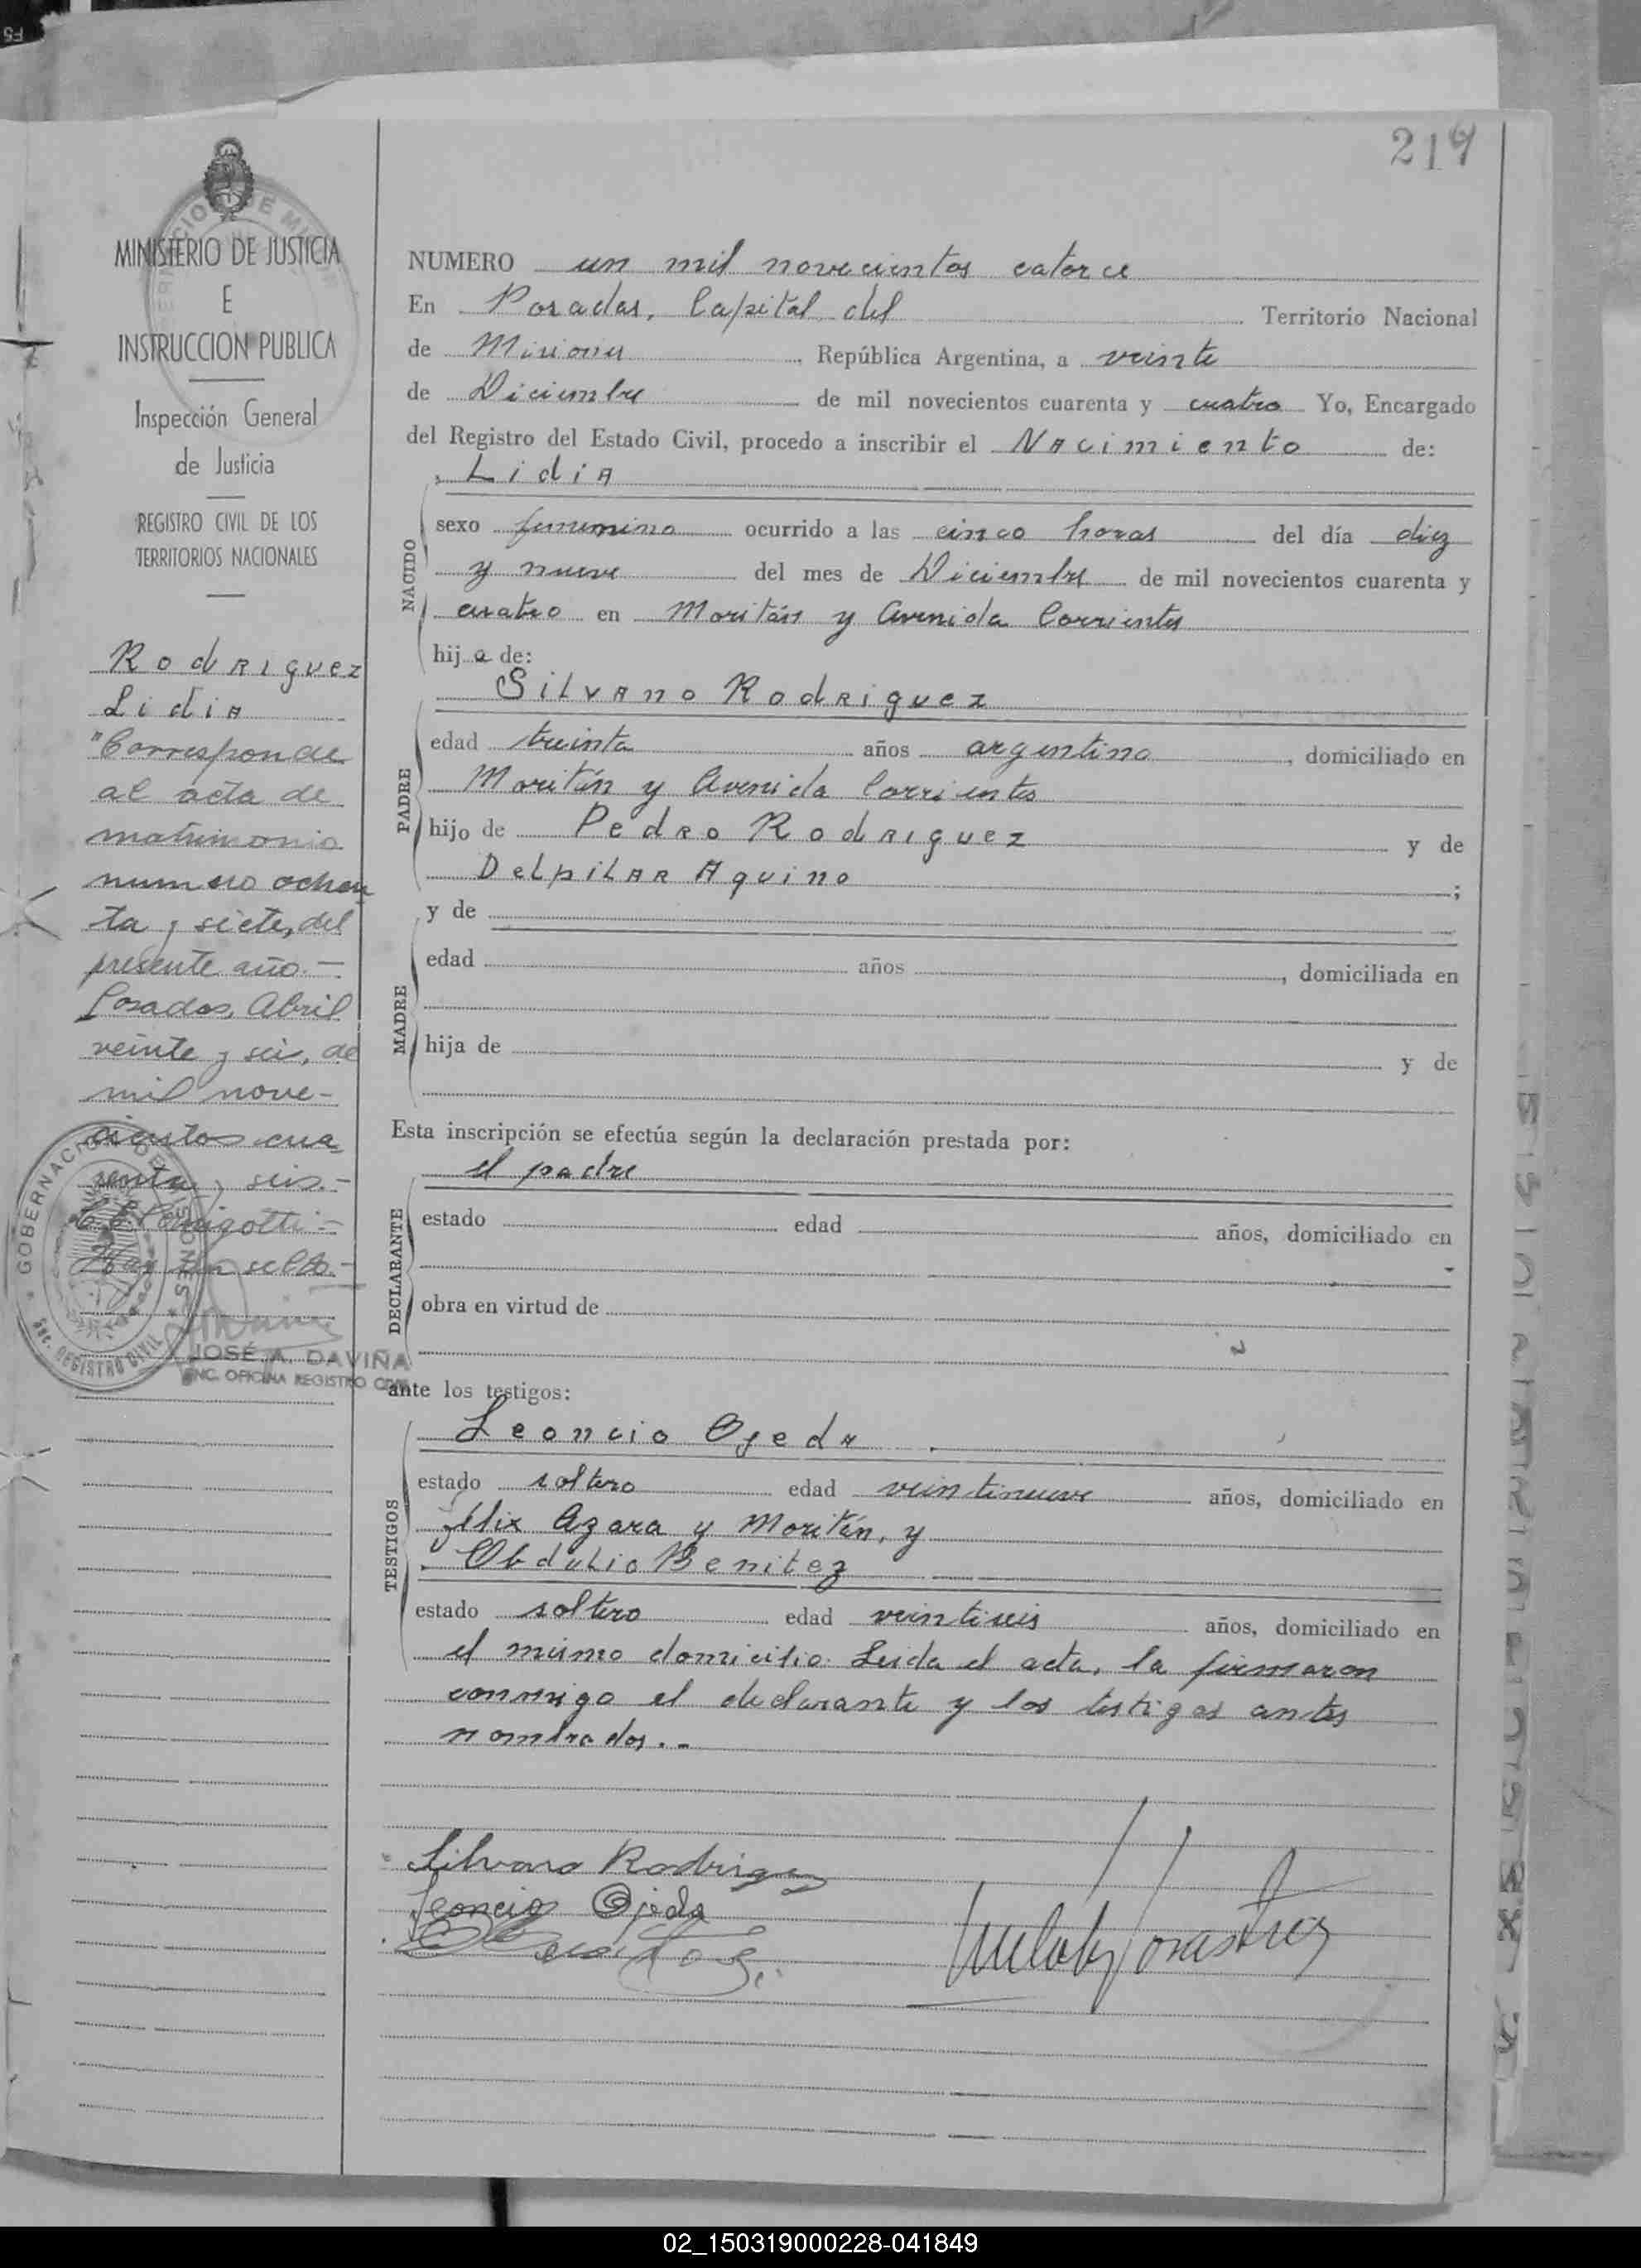 219
MINISTERIO DE JUSTICIA
E
INSTRUCCION PUBLICA
Inspección General
de Justicia
REGISTRO CIVIL DE LOS
TERRITORIOS NACIONALES
Rodriguez
Lidia
"Corresponde
al acta de
matrimonio
numero ochen
ta y siete, del
presente año.—
Posadas, Abril
veinte y seis, de
mil nove-
cientos cua
renta y seis.-
Hay un sello.-
GOBERNACION DE MISIONES
Sec. REGISTRO CIVIL
JOSÉ A. DAVIÑA
ENC. OFICINA REGISTRO CIVIL
NUMERO un mil novecientos catorce
En Posadas, Capital del Territorio Nacional
de Misiones, República Argentina, a veinte
de Diciembre de mil novecientos cuarenta y cuatro Yo, Encargado
del Registro del Estado Civil, procedo a inscribir el Nacimiento de:
Lidia
NACIDO
sexo femenino ocurrido a las cinco horas del día diez
y nueve del mes de Diciembre de mil novecientos cuarenta y
cuatro en Moritán y Avenida Corrientes
hija de:
Silvano Rodriguez
PADRE
edad treinta años argentino, domiciliado en
Moritán y Avenida Corrientes
hijo de Pedro Rodriguez y de
Delpilar Aquino;
y de
MADRE
edad años, domiciliada en
hija de y de
Esta inscripción se efectúa según la declaración prestada por:
el padre
DECLARANTE
estado edad años, domiciliado en
obra en virtud de
ante los testigos:
Leoncio Ojeda
TESTIGOS
estado soltero edad veintinueve años, domiciliado en
Félix Azara y Moritán, y
Obdulio Benitez
estado soltero edad veintiseis años, domiciliado en
el mismo domicilio. Leida el acta, la firmaron
conmigo el declarante y los testigos antes
nombrados..-
Silvano Rodriguez
Leoncio Ojeda
02_150319000228-041849